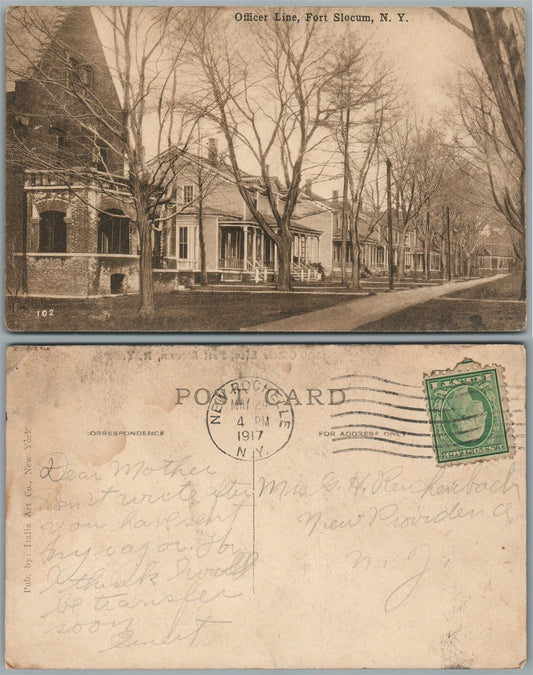 Officer Line, Fort Slocum, N. Y.
102
POST CARD
NEW ROCHELLE
MAY
4 PM
1917
N.Y.
ORRESPONDENCE
FOR ADDRESS ONLY
Pub. by: Italia Art Co., New York
Dear Mother
don't write after
you have sent
my razor. for
I think I will
be transfer
soon
Mrs G. H. Reichenbach
New Providence
N. J.